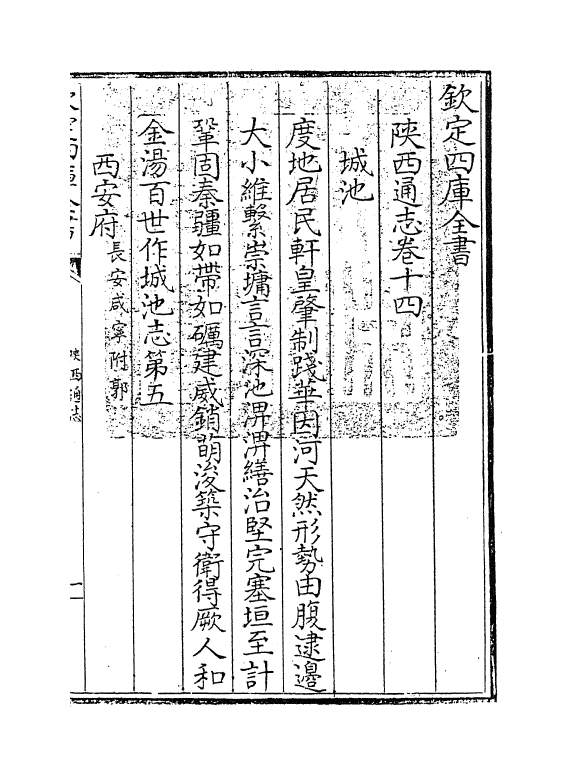 欽定四庫全書
陕西通志卷十四
城池
度地居民軒皇肇制踐華因河天然形勢由腹逮邊
大小維繫崇墉言言深池淠淠繕治堅完塞垣至計
鞏固秦疆如帶如礪建威銷萌浚築守衛得厥人和
金湯百世作城池志第五
西安府長安咸寧附郭
陕西通志
一